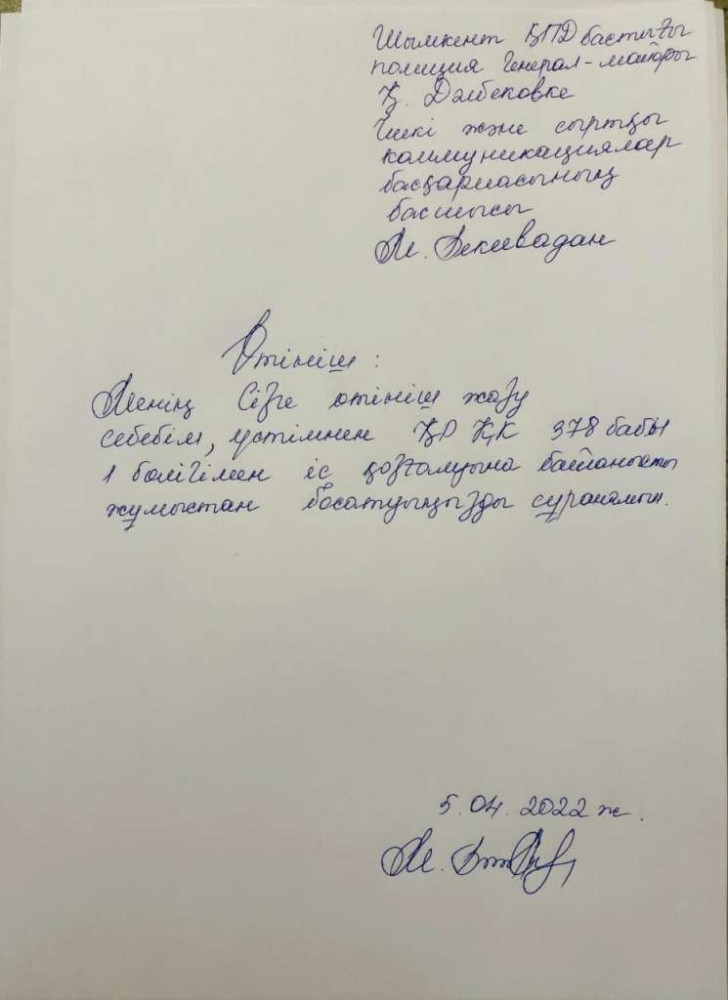 Шымкент ҚПД бастығы
полиция Генерал-майоры
Қ. Дәлбековке
Ішкі және сыртқы
коммуникациялар
басқармасының
басшысы
М.
Өтініш:
Менің Сізге өтініш жазу
себебім, үстімнен ҚР ҚК 378 бабы
1 бөлігімен іс қозғалуына байланысты
жұмыстан босатуыңызды сұранамын.
5.04.2022 ж.
М.